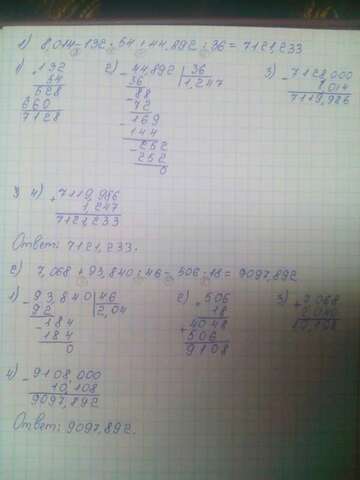 1) 8,014-132·54+44,892:36=7121,233
1) 132
54
528
660
7128
2) 44,892 | 36
36 1,247
88
72
169
144
252
252
0
3) 7128,000
8,014
7119,986
4) 7119,986
1,247
7121,233
Ответ: 7121,233.
2) 7,068+93,840:46-506·18=9097,892
1) 93,840 | 46
92 2,04
184
184
0
2) 506
18
4048
506
9108
3) 7,068
2,040
10,108
4) 9108,000
10,108
9097,892
Ответ: 9097,892.